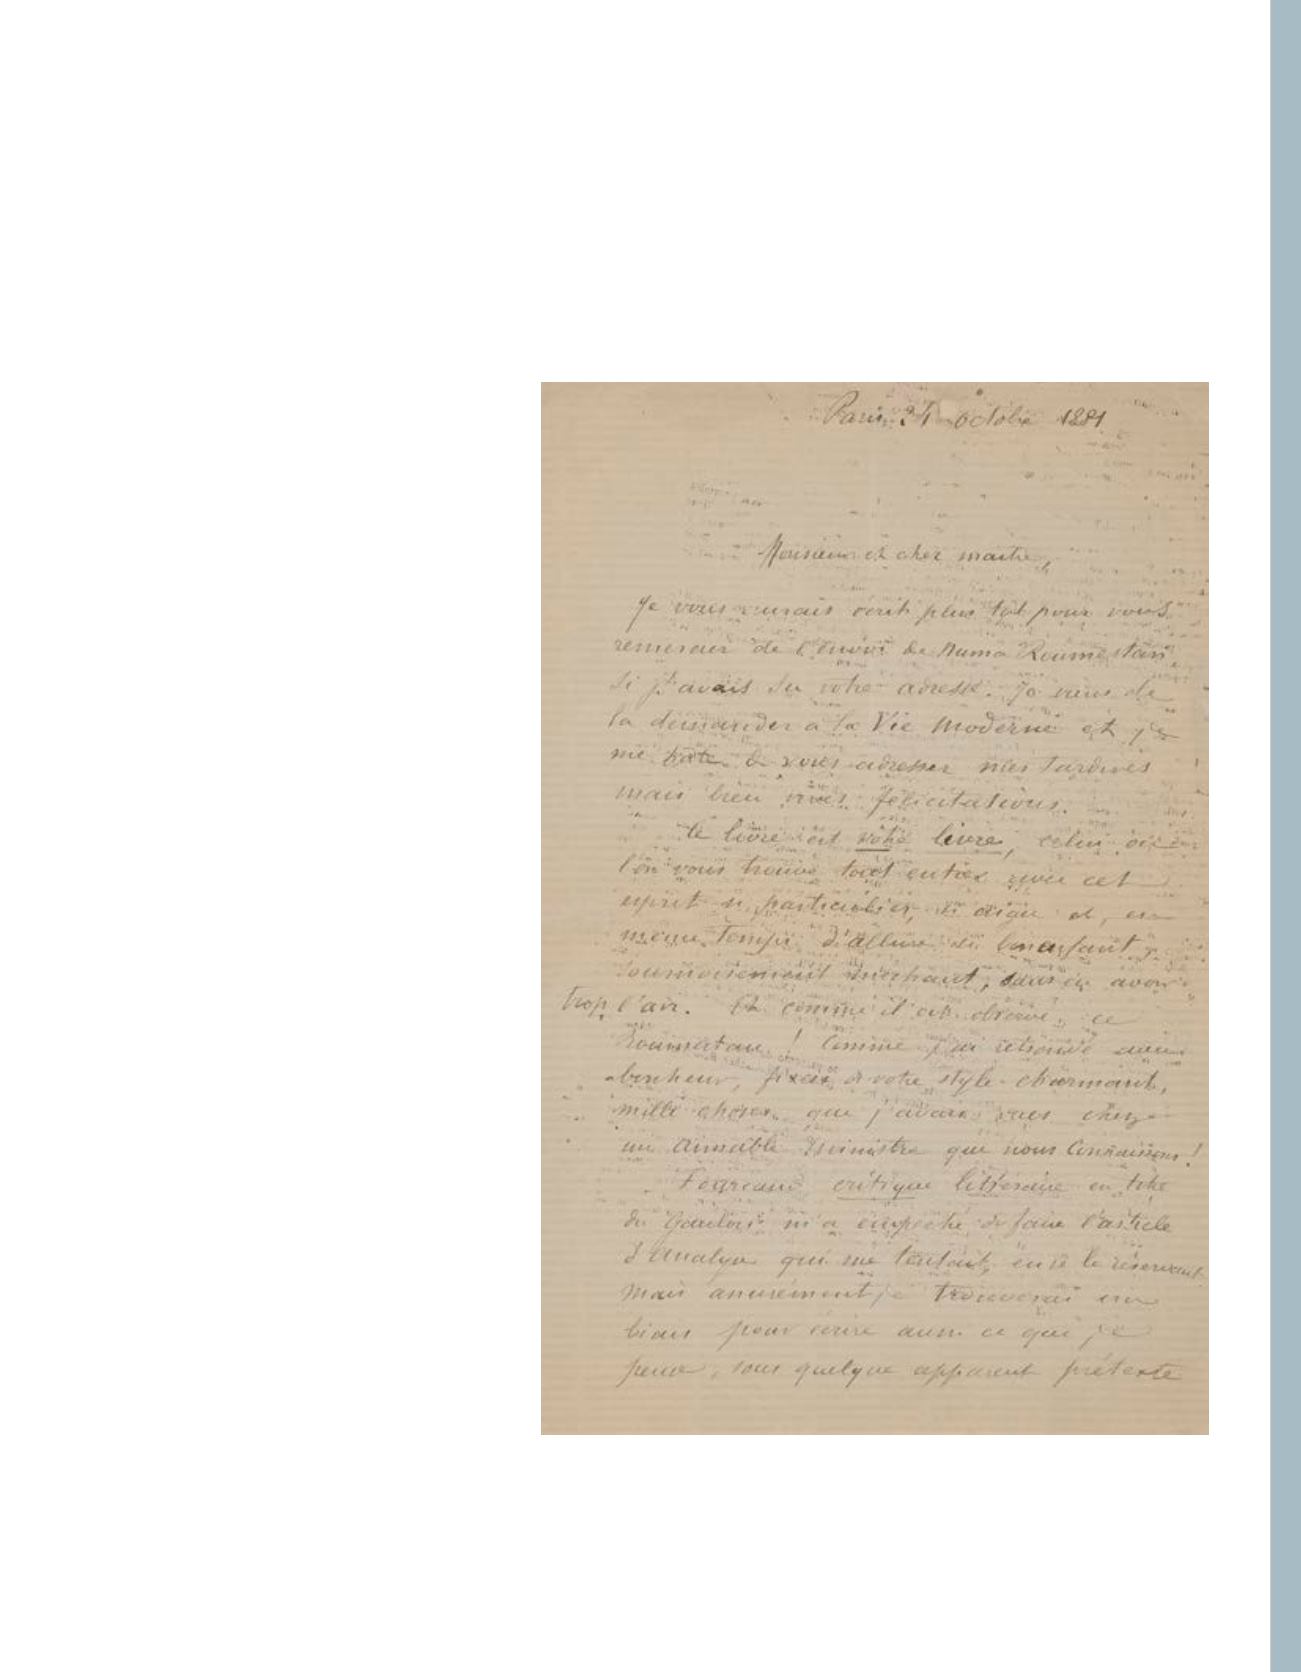 Paris 21 octobre 1881
Monsieur et cher maître,
Je vous aurais écrit plus tôt pour vous
remercier de l'envoi de Numa Roumestan
si j'avais su votre adresse. Je viens de
la demander à la Vie Moderne et je
me hâte de vous adresser mes tardives
mais bien vives félicitations.
Ce livre est votre livre, celui où
l'on vous trouve tout entier avec cet
esprit si particulier, si aigu et, en
même temps d'allure si bon enfant,
sournoisement méchant, sans en avoir
trop l'air. Et comme il est observé, ce
Roumestan ! Comme j'ai retrouvé avec
bonheur, fixées de votre style charmant,
mille choses que j'avais vues chez
un aimable Ministre que nous connaissons !
Fourcaud critique littéraire en tête
du Gaulois m'a empêché de faire l'article
d'analyse qui me tentait, en se le réservant
Mais assurément je trouverai un
biais pour écrire aussi ce que je
pense, sous quelque apparent prétexte